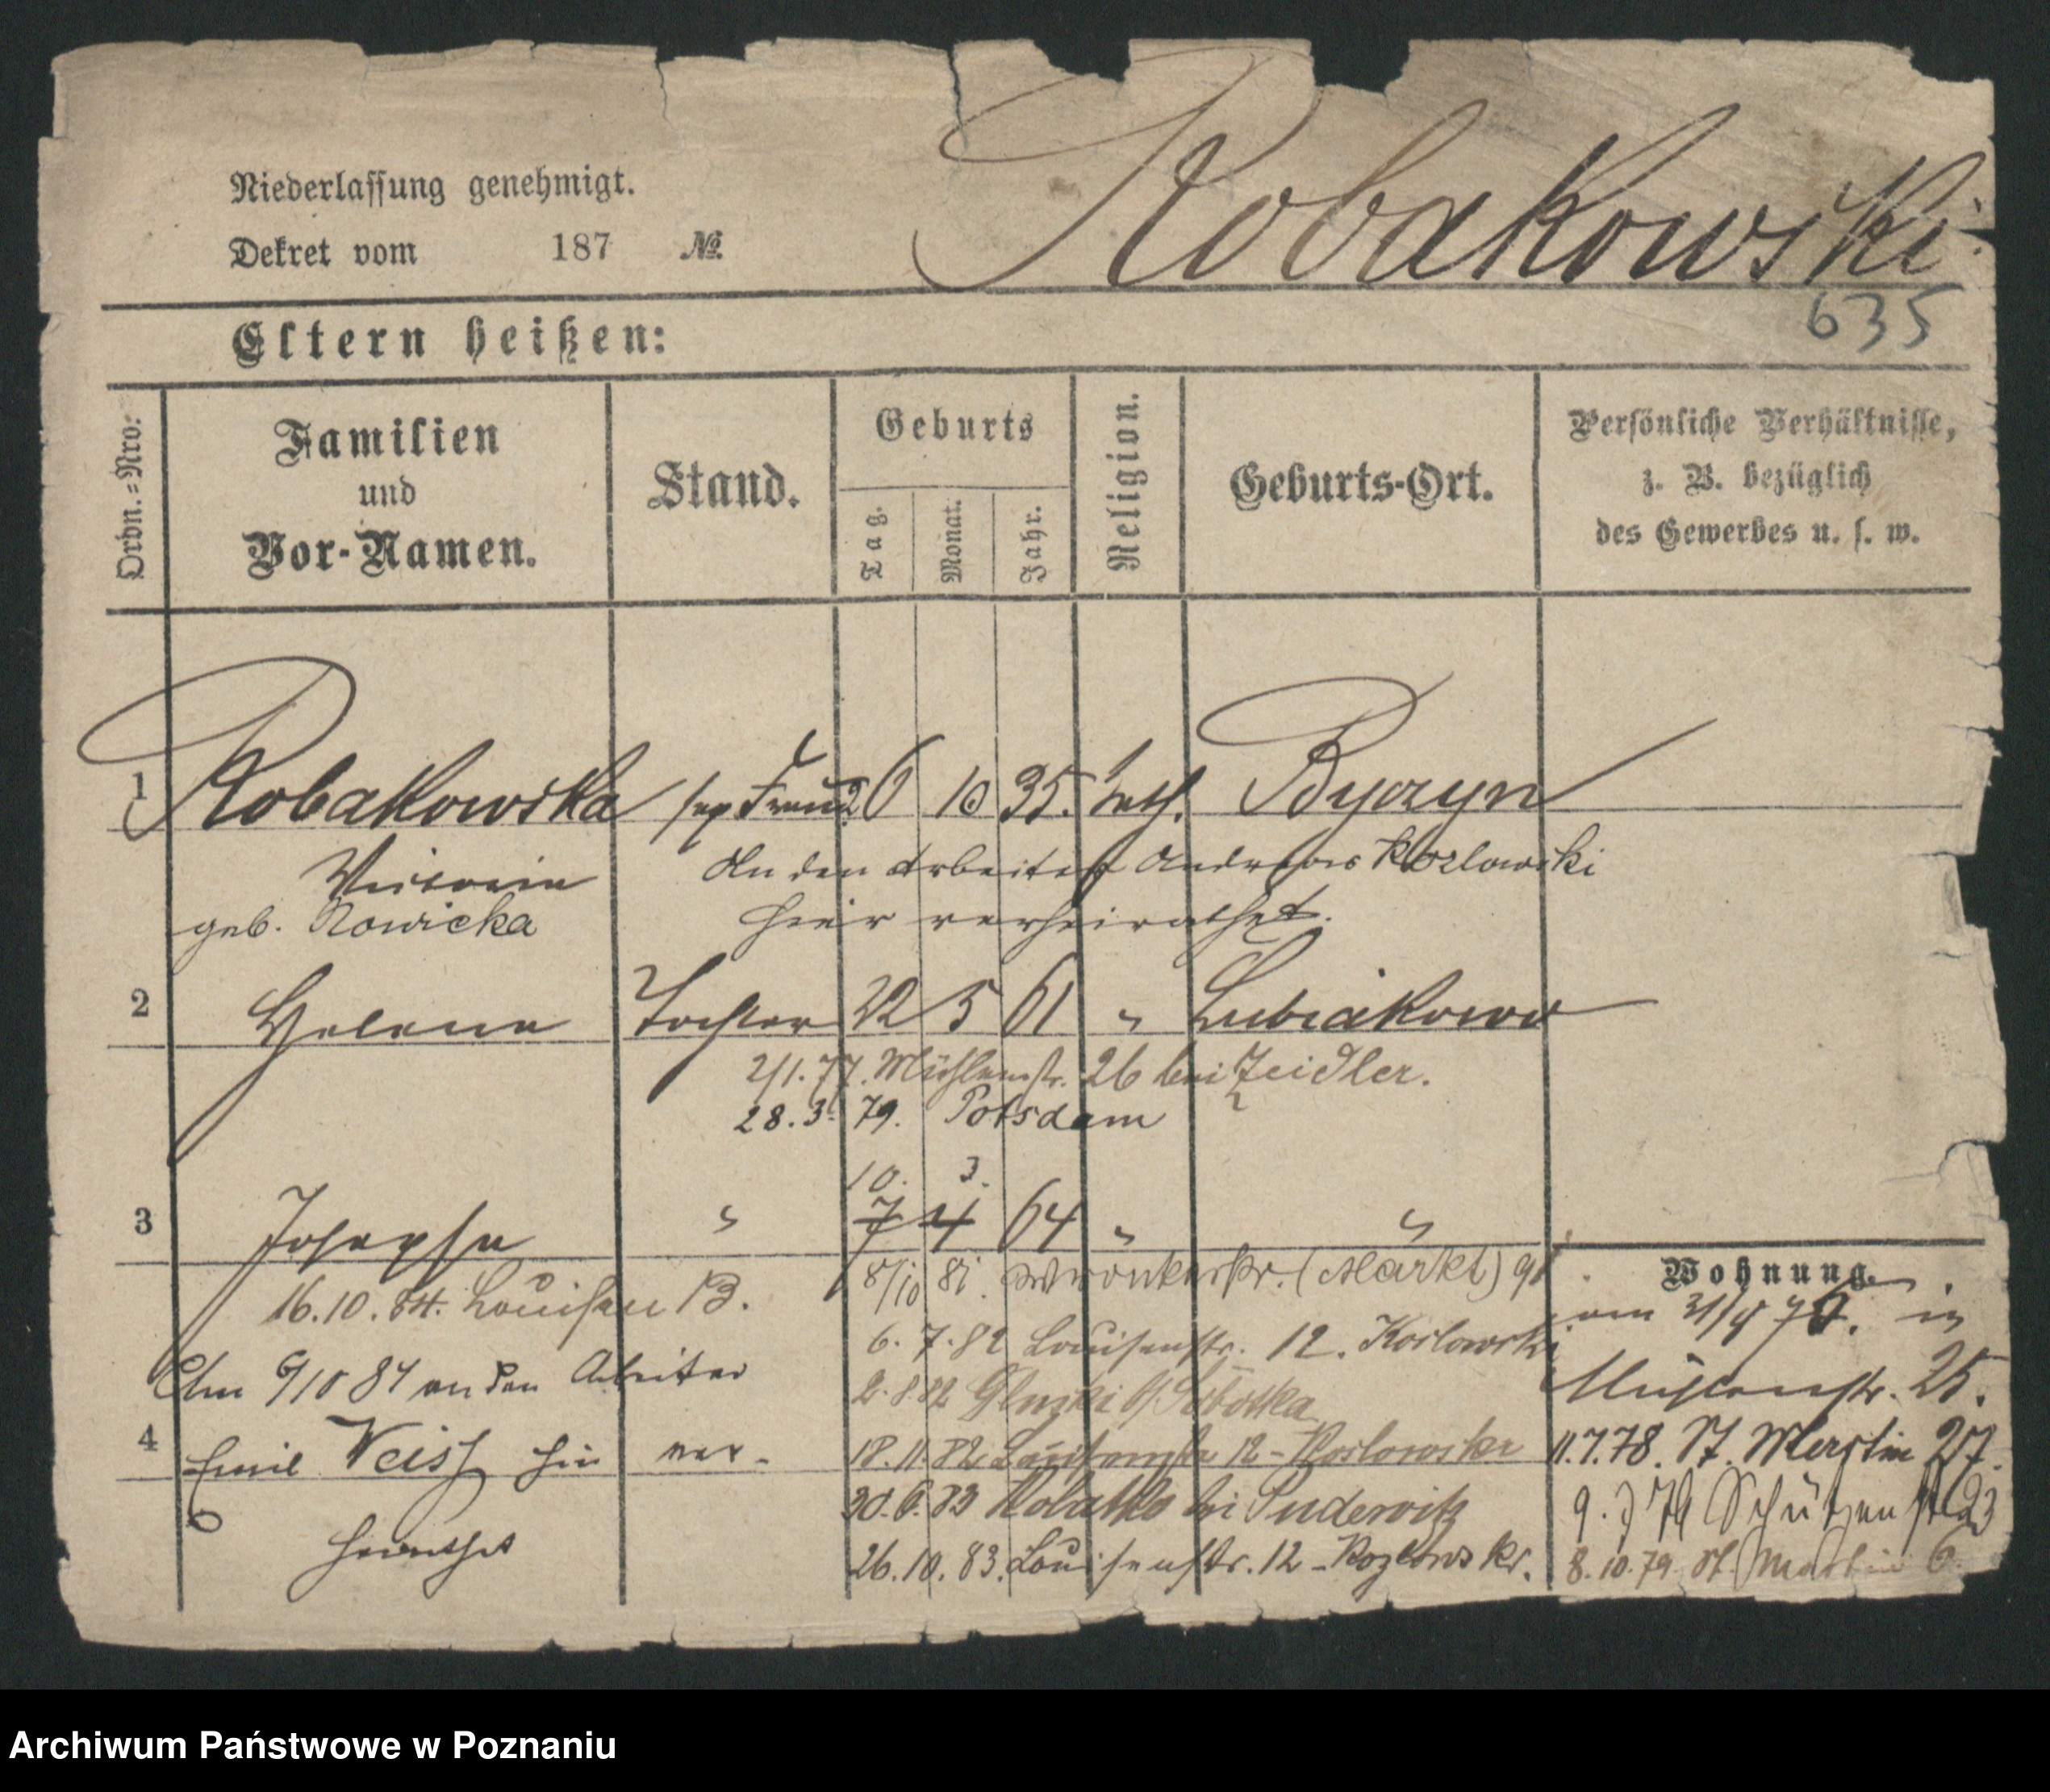 Niederlassung genehmigt.
Dekret vom 187 No.
Robakowski
635
Eltern heißen:
Ordn.=Nro:
Familien
und
Vor-Namen.
Stand.
Geburts
Tag.
Monat.
Jahr.
Religion.
Geburts-Ort.
Persönliche Verhältnisse,
z. B. bezüglich
des Gewerbes u. s. w.
1 Robakowska sep Frau 26 10 35. kath. Byczyn
An den Arbeiter Andreas Kozlowski
geb. Nowicka hier verheirathet.
2 Helena Tochter 22 5 61 " Lubiakowo
2/1.77. Mühlenstr. 26 bei Zeidler.
28.3. 79. Potsdam
10. 3.
3 Josepha " 7 4 64 " "
8/10 81. Wronkerstr. (Markt) 91
16.10.84. Louisen 13.
6.7.82 Louisenstr. 12. Koslowski
Am 9/10 84 an den Arbeiter
2.8.82
4 Emil Weiss hier ver-
heirathet
18.11.82 Louisenstr 12 - Koslowski
30.6.83 bei
26.10.83. Louisenstr. 12 - Kozlowski.
Wohnung.
am in
Mühlenstr. 25.
11.7.78. St. Martin 27.
Schützenstr
8.10.79 St. Martin 6.
Archiwum Państwowe w Poznaniu